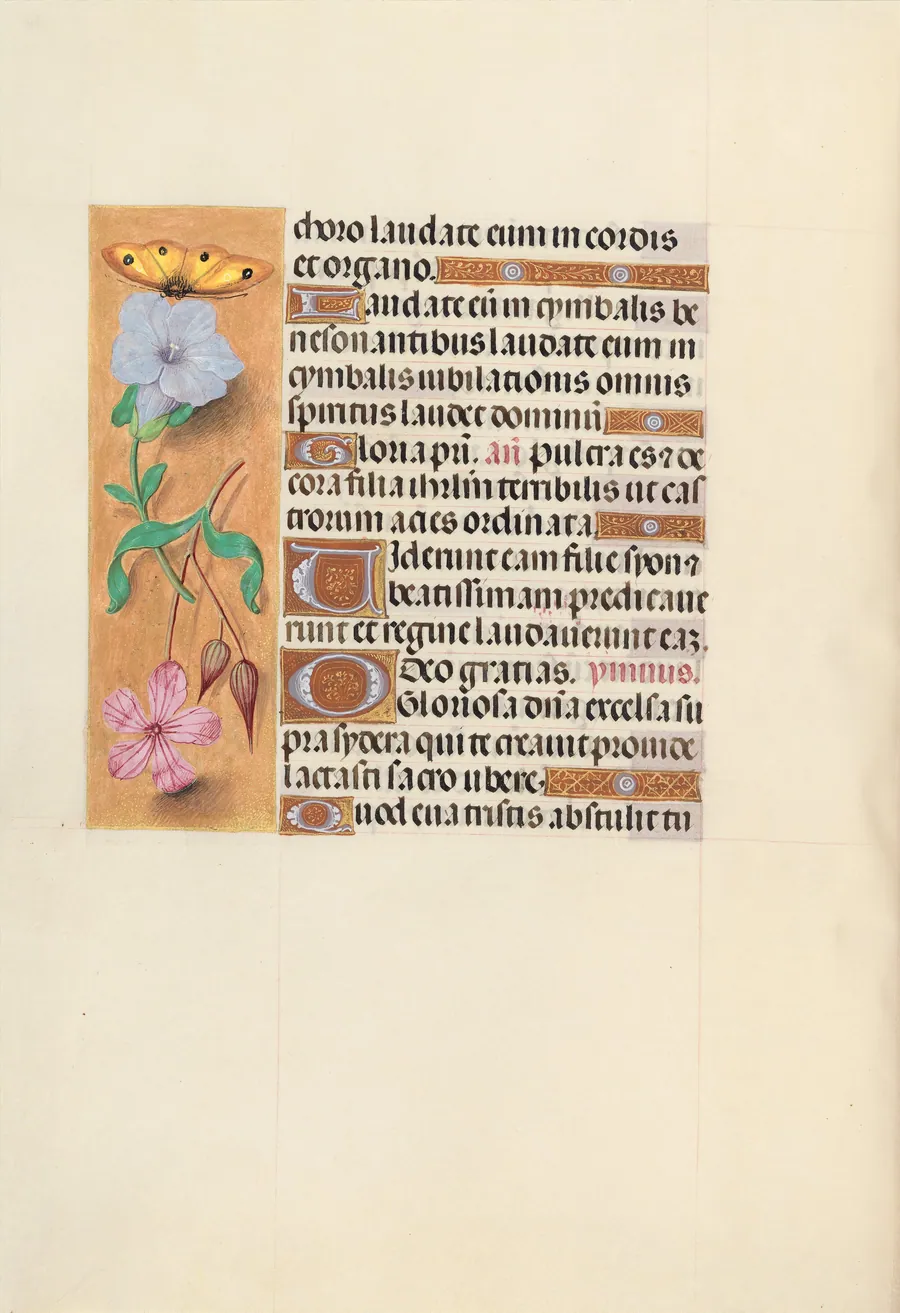 choro laudate eum in cordis
et organo.
Laudate eū in cymbalis be
nesonantibus laudate eum in
cymbalis iubilationis omnis
spiritus laudet dominū
Gloria pri. añ pulcra es ⁊ de
cora filia ihrlm̄ terribilis ut cas
trorum acies ordinata
Uiderunt eam filie syon ⁊
beatissimam predicaue
runt et regine laudauerunt eaꝫ.
Deo gratias. ymnus.
O Gloriosa dn̄a excelsa su
pra sydera qui te creauit prouide
lactasti sacro ubere.
Quod eua tristis abstulit tu